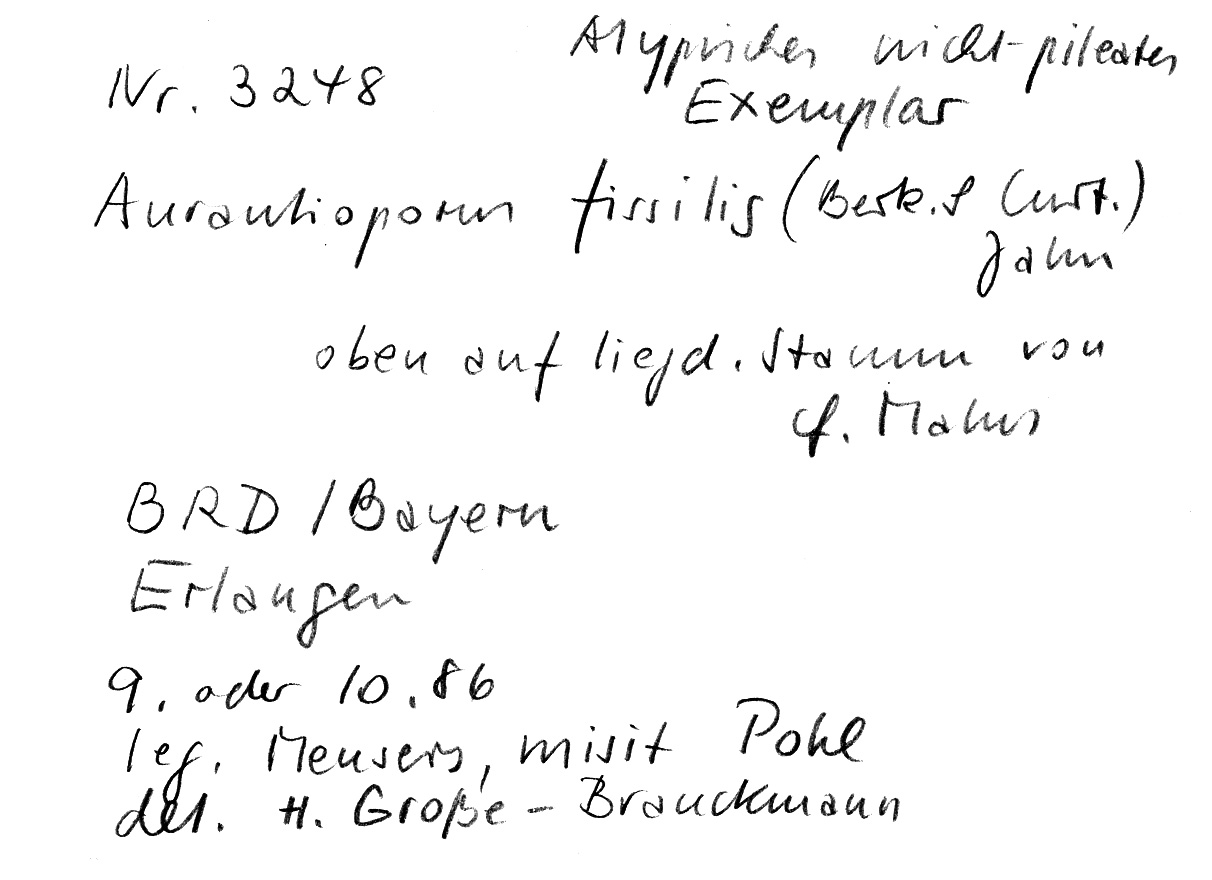 Nr. 3248
Atypisches nicht-pileates
Exemplar
Aurantioporus fissilis (Berk. & Curt.)
Jahn
oben auf liegd. Stamm von
cf. Malus
BRD / Bayern
Erlangen
9. oder 10.86
leg. Meusers, misit Pohl
det. H. Große-Brauckmann